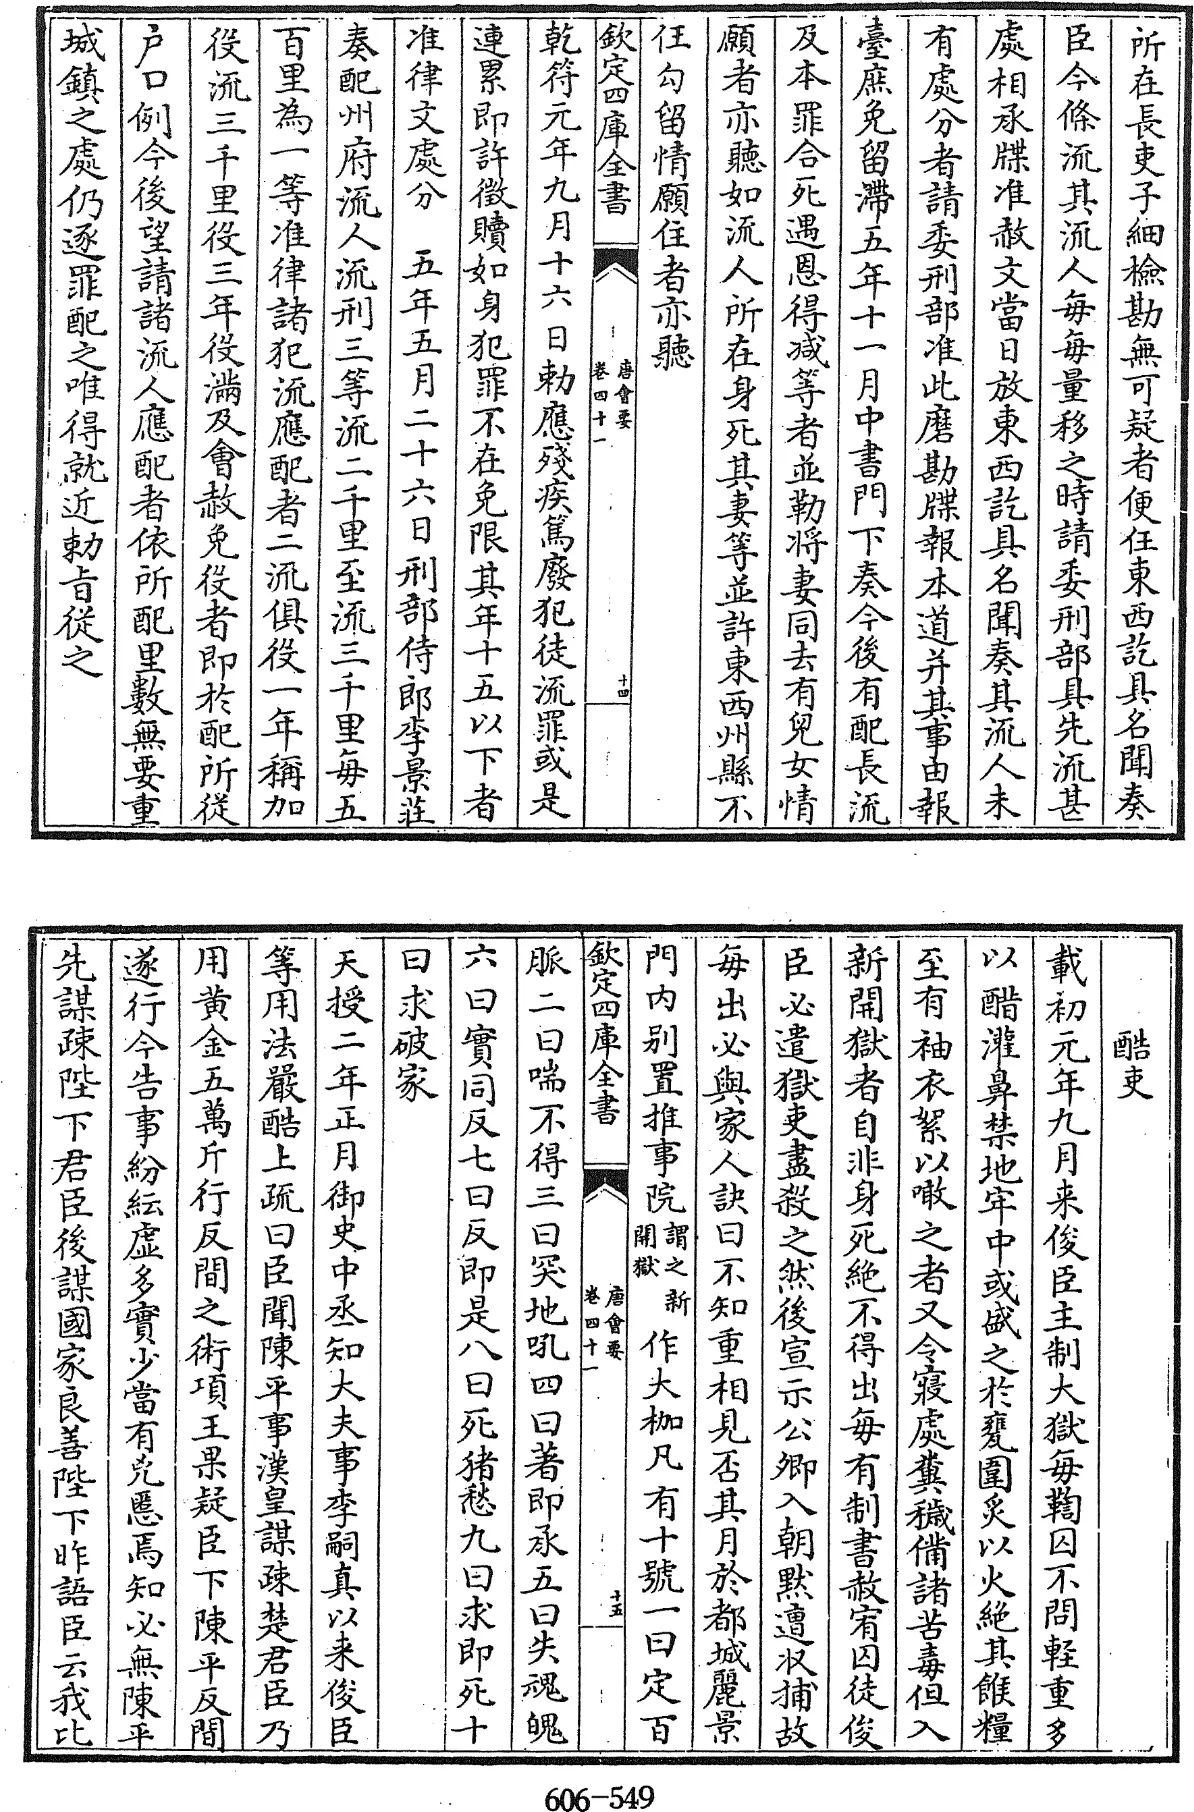 所在長吏子細檢勘無可疑者便任東西訖具名聞奏
臣今條流其流人每每量移之時請委刑部具先流甚
處相承牒准赦文當日放東西訖具名聞奏其流人未
有處分者請委刑部准此磨勘牒報本道并其事由報
臺庶免留滯五年十一月中書門下奏今後有配長流
及本罪合死遇恩得減等者並勒將妻同去有兒女情
願者亦聽如流人所在身死其妻等並許東西州縣不
任勾留情願住者亦聽
欽定四庫全書
唐會要
卷四十一
十四
乾符元年九月十六日勅應殘疾篤廢犯徒流罪或是
連累即許徵贖如身犯罪不在免限其年十五以下者
准律文處分 五年五月二十六日刑部侍郎李景莊
奏配州府流人流刑三等流二千里至流三千里每五
百里為一等准律諸犯流應配者二流俱役一年稱加
役流三千里役三年役滿及會赦免役者即於配所從
户口例今後望請諸流人應配者依所配里數無要重
城鎮之處仍逐罪配之唯得就近勅旨從之
酷吏
載初元年九月来俊臣主制大獄每鞫囚不問輕重多
以醋灌鼻禁地牢中或盛之於甕圍炙以火絶其餱糧
至有袖衣絮以噉之者又令寢處糞穢備諸苦毒但入
新開獄者自非身死絶不得出每有制書赦宥囚徒俊
臣必遣獄吏盡殺之然後宣示公卿入朝黙遭收捕故
每出必與家人訣曰不知重相見否其月於都城麗景
門内别置推事院謂之新開獄作大枷凡有十號一曰定百
欽定四庫全書
唐會要
卷四十一
十五
脈二曰喘不得三曰突地吼四曰著即承五曰失魂魄
六曰實同反七曰反即是八曰死猪愁九曰求即死十
曰求破家
天授二年正月御史中丞知大夫事李嗣真以来俊臣
等用法嚴酷上疏曰臣聞陳平事漢皇謀疎楚君臣乃
用黄金五萬斤行反間之術項王果疑臣下陳平反間
遂行今告事紛紜虚多實少當有兇慝焉知必無陳平
先謀疎陛下君臣後謀國家良善陛下昨語臣云我比
606-549